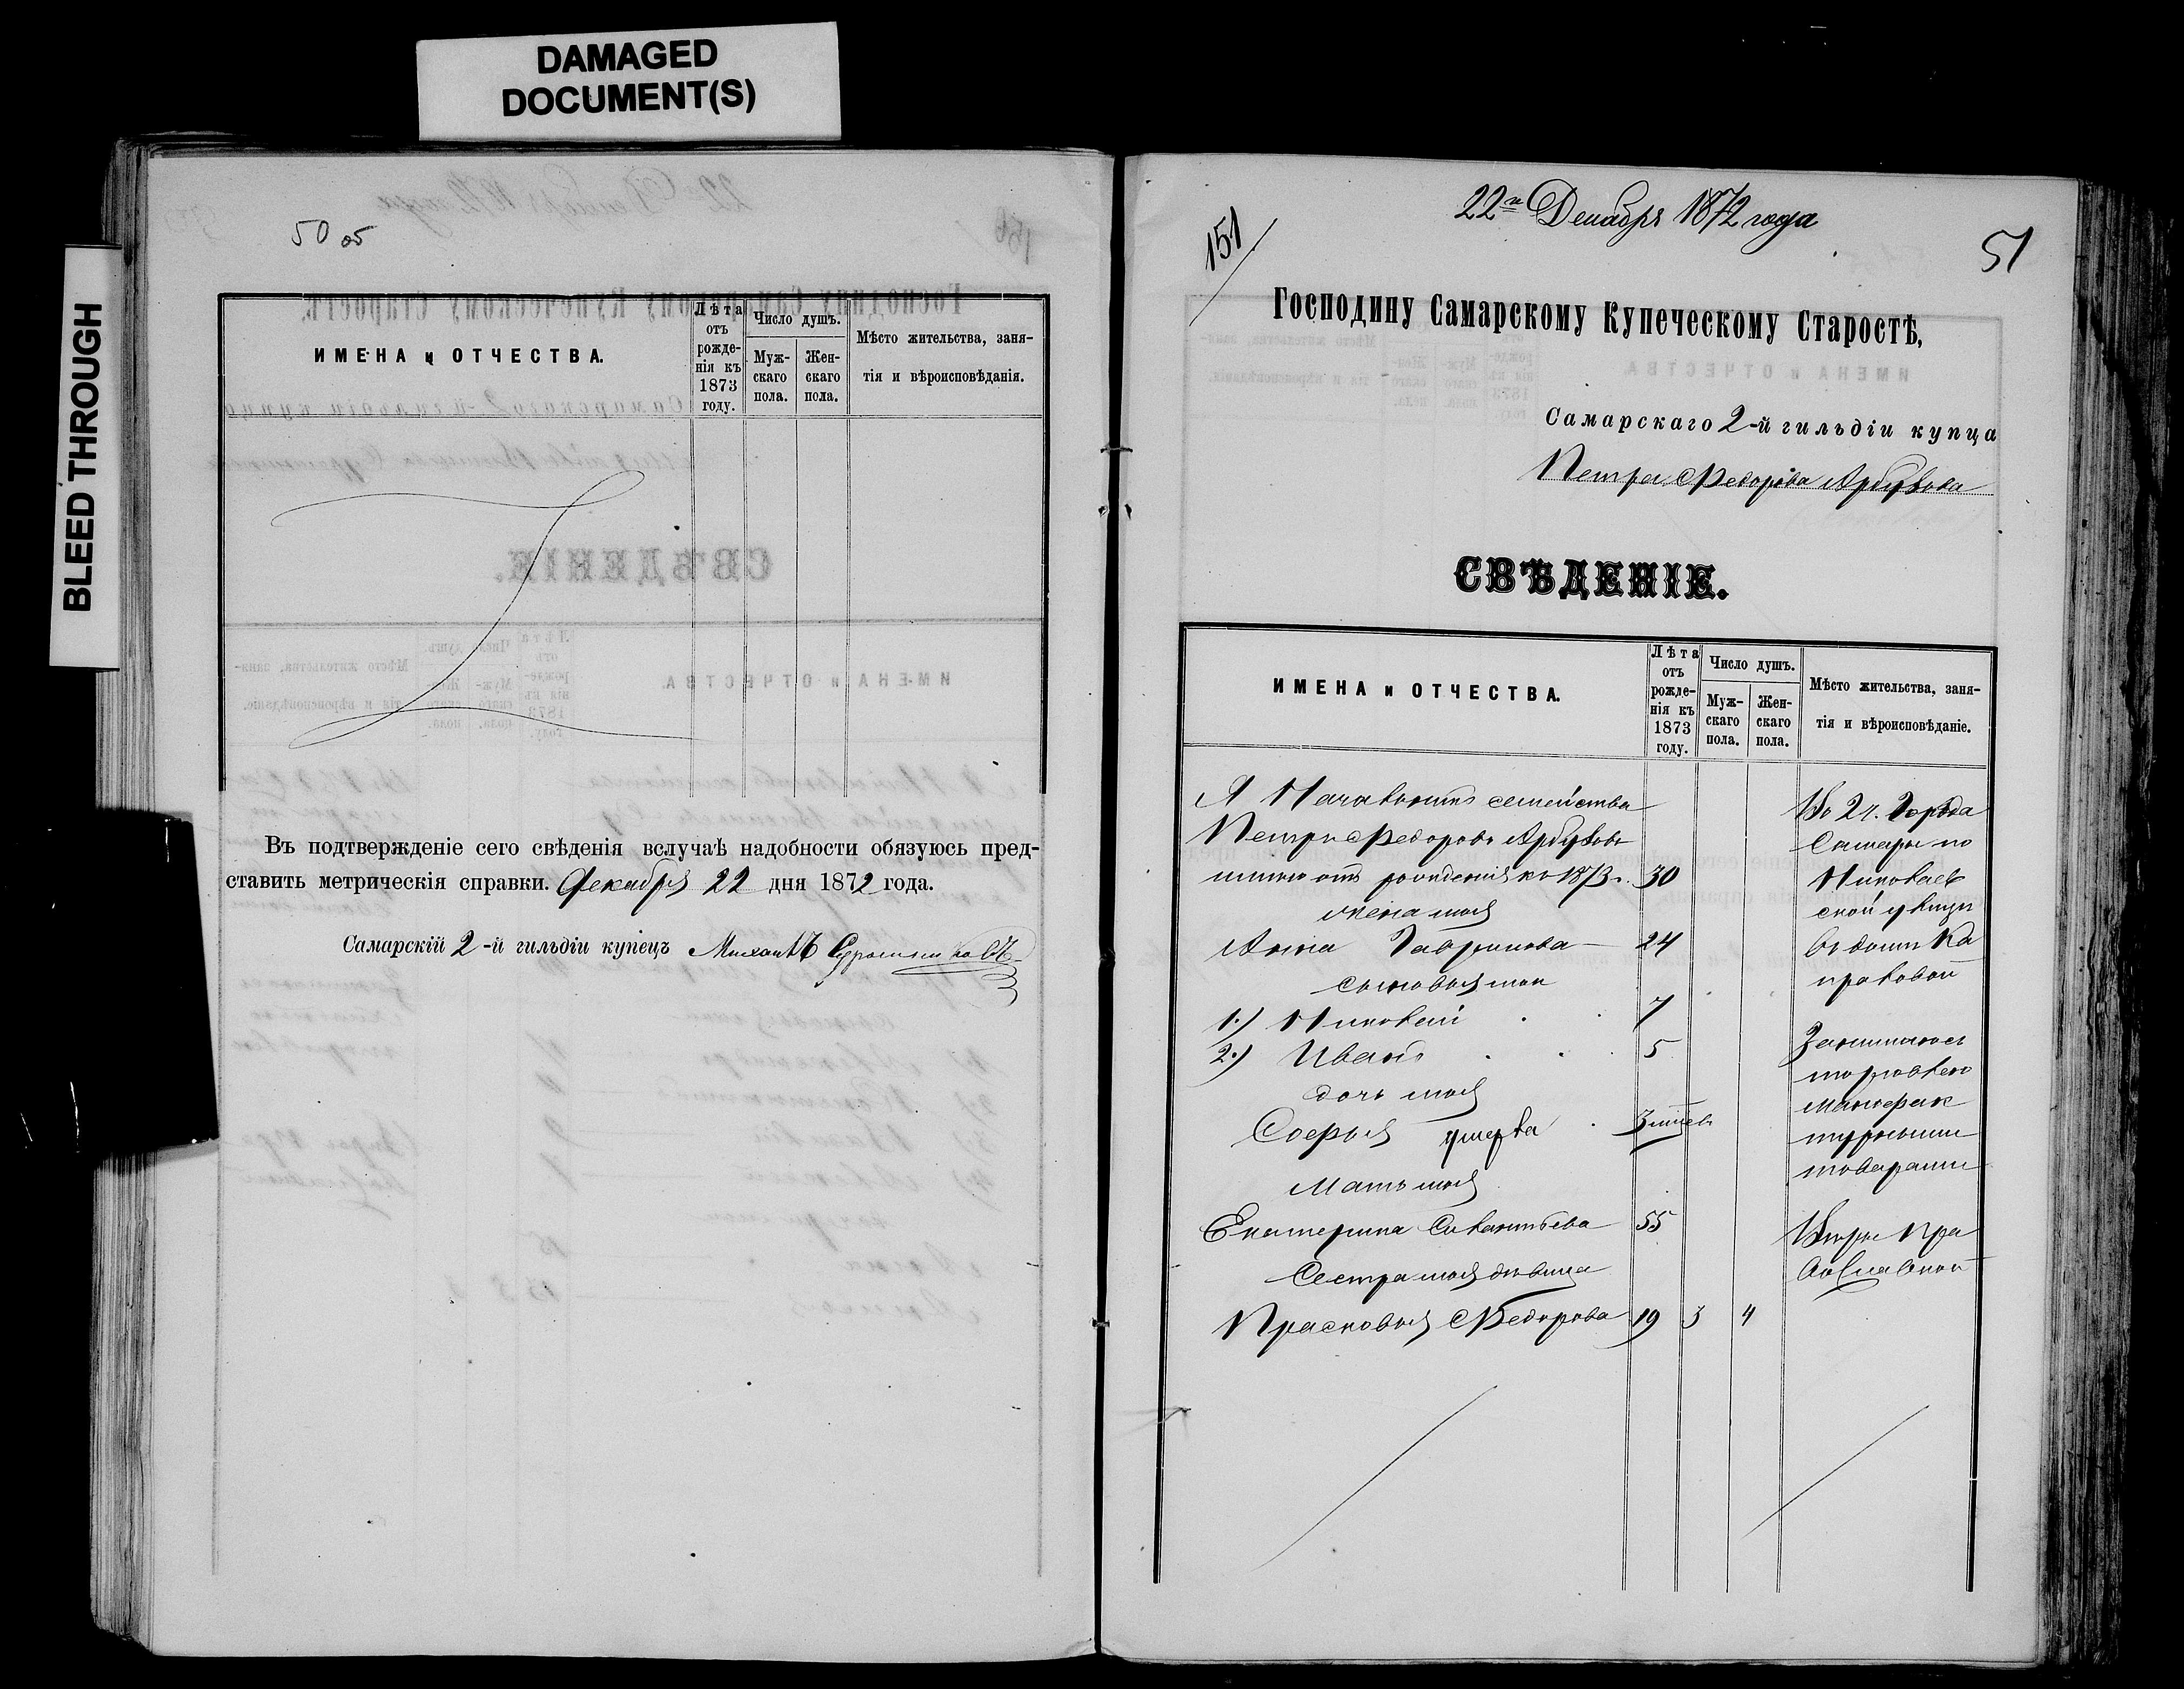 DAMAGED
DOCUMENT(S)
BLEED THROUGH
50 об
ИМЕНА и ОТЧЕСТВА.
Лѣта отъ рожденія къ 1873 году.
Число душъ.
Мужскаго пола.
Женскаго пола.
Мѣсто жительства, занятія и вѣроисповѣданія.
Въ подтвержденіе сего свѣденія вслучаѣ надобности обязуюсь пред-
ставить метрическія справки. Декабря 22 дня 1872 года.
Самарскій 2-й гильдіи купецъ Михаилъ
151
22го Декабря 1872 года
51
Господину Самарскому Купеческому Старостѣ,
Самарскаго 2-й гильдіи купца
Петра Федорова Арбузова
СВѢДЕНІЕ.
ИМЕНА и ОТЧЕСТВА.
Лѣта отъ рожденія къ 1873 году.
Число душъ.
Мужскаго пола.
Женскаго пола.
Мѣсто жительства, занятія и вѣроисповѣданіе.
Я Начальникъ семейства
Петръ Федоровъ Арбузовъ
имѣю отъ рожденія къ 1873 г. 30
жена моя
Анна Гаврилова 24
сыновья мои
1.) Николай 7
2.) Иванъ 5
дочь моя
Софья умерла
Мать моя
Екатерина 55
Сестра моя дѣвица
Прасковья Федорова 19 3 4
Во 2 ч. Города
Самары по
Николаев
ской улицѣ
въ домѣ Ка
Занимаюсь
торговлею
мануфак
турными
товарами
Вѣры Пра
вославной